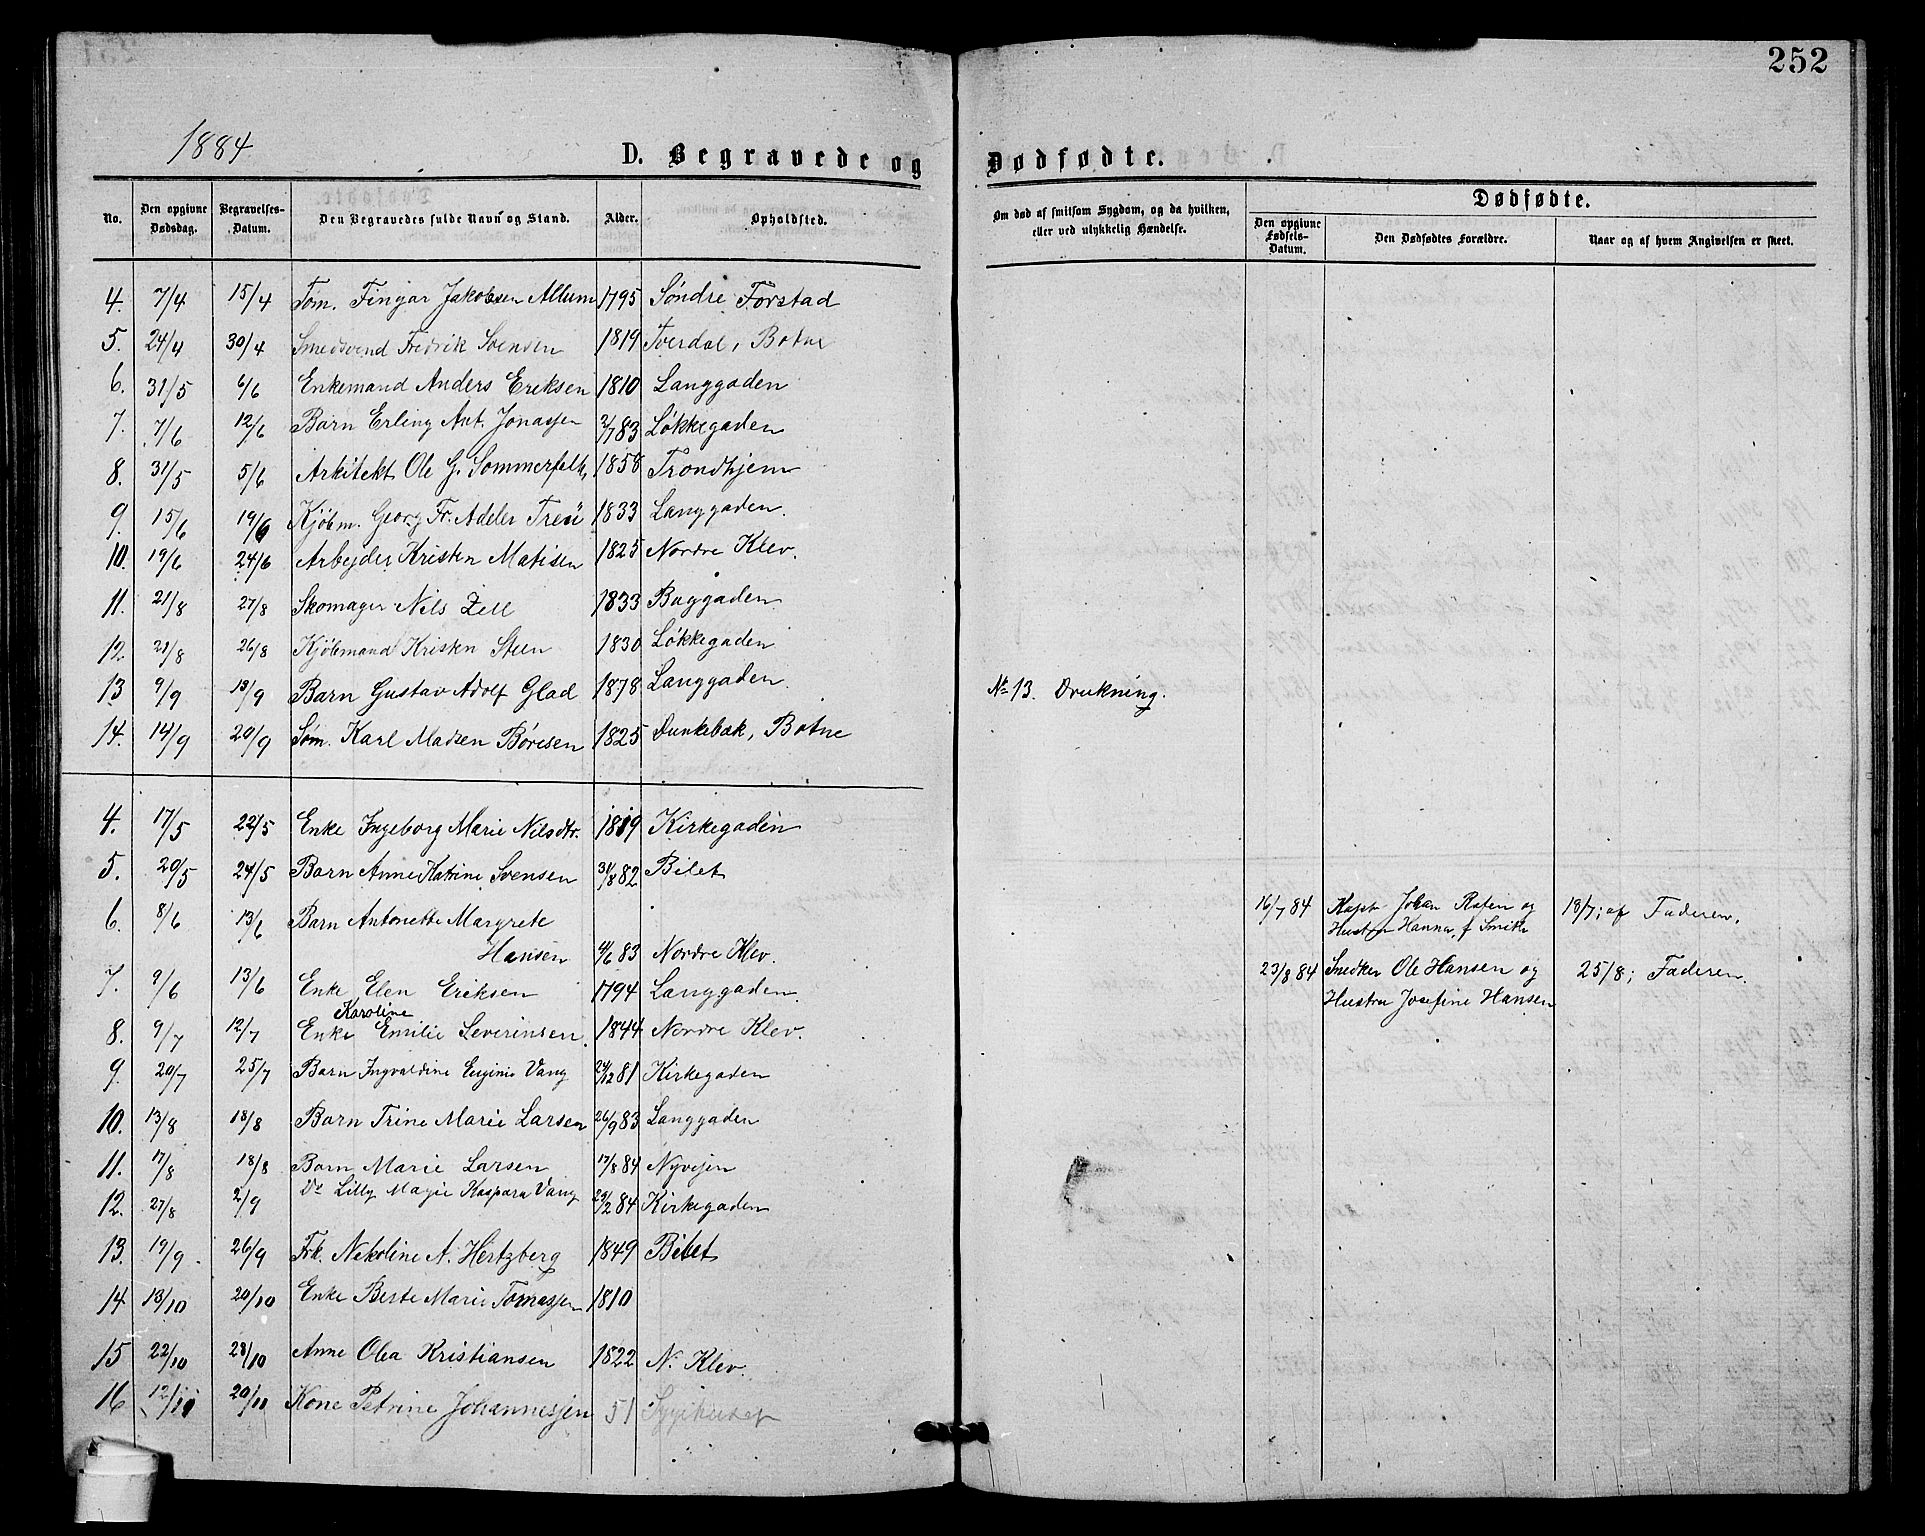 252
1884
D. Begravede og Dødfødte.
No. Den opgivne Dødsdag. Begravelses-Datum. Den Begravedes fulde Navn og Stand. Alder. Opholdsted. Om død af smitsom Sygdom, og da hvilken, eller ved ulykkelig Hændelse.
Dødfødte.
Den opgivne Fødsels-Datum. Den Dødfødtes Forældre. Naar og af hvem Angivelsen er skeet.
4. 7/4 15/4 Tøm. Fingar Jakobsen Allum 1795 Søndre Forstad
5. 24/4 30/4 Smedsvend Fredrik Svensen 1819 Tverdal, Botne
6. 31/5 6/6 Enkemand Anders Eriksen 1810 Langgaden
7. 7/6 12/6 Barn Erling Ant. Jonassen 2/7 83 Løkkegaden
8. 31/5 5/6 Arkitekt Ole G. Sommerfeldt 1858 Trondhjem
9. 15/6 19/6 Kjøbm. Georg Fr. Adeler Treu 1833 Langgaden.
10. 19/6 24/6 Arbejder Kristen Matisen 1825 Nordre Klev.
11. 21/8 27/8 Skomager Nils Zell 1833 Baggaden
12. 21/8 26/8 Kjøbmand Kristen Steen 1830 Løkkegaden
13 9/9 13/9 Barn Gustav Adolf Glad 1878 Langgaden. No 13. Drukning.
14. 14/9 20/9 Søm. Karl Madsen Børesen 1825 Dunkebæk, Botne
4. 17/5 22/5 Enke Ingeborg Marie Nilsdtr. 1819 Kirkegaden
5. 20/5 24/5 Barn Anne Katrine Svensen 31/8 82 Bilet
6. 8/6 13/6 Barn Antonette Margrete
Hansen 4/6 83 Nordre Klev.
7. 9/6 13/6 Enke Elen Eriksen 1794 Langgaden.
Karoline
8. 9/7 12/7 Enke Emilie Severinsen. 1844 Nordre Klev.
9. 20/7 25/7 Barn Ingvaldine Eugenie Vang 24/12 81 Kirkegaden
10. 13/8 18/8 Barn Trine Marie Larsen 26/9 83 Langgaden
11. 17/8 18/8 Barn Marie Larsen 17/8 84 Nyvejen
12. 27/8 2/9 Do Lilly Magie Kaspara Vang 29/2 84 Kirkegaden
13. 19/9 26/9 Frk. Nikoline A. Hertzberg 1849 Bilet
14 13/10 20/10 Enke Berte Marie Tomassen 1810
15 22/10 28/10 Anne Olea Kristiansen 1822 N. Klev.
16 12/11 20/11 Kone Petrine Johannessen 51 Sygehuset
16/7 84 Kapt. Johan Rafen og 18/7; af Faderen.
Hustru Hanna, f Smith
23/8 84 Snedker Ole Hansen og 25/8; Faderen.
Hustru Josefine Hansen